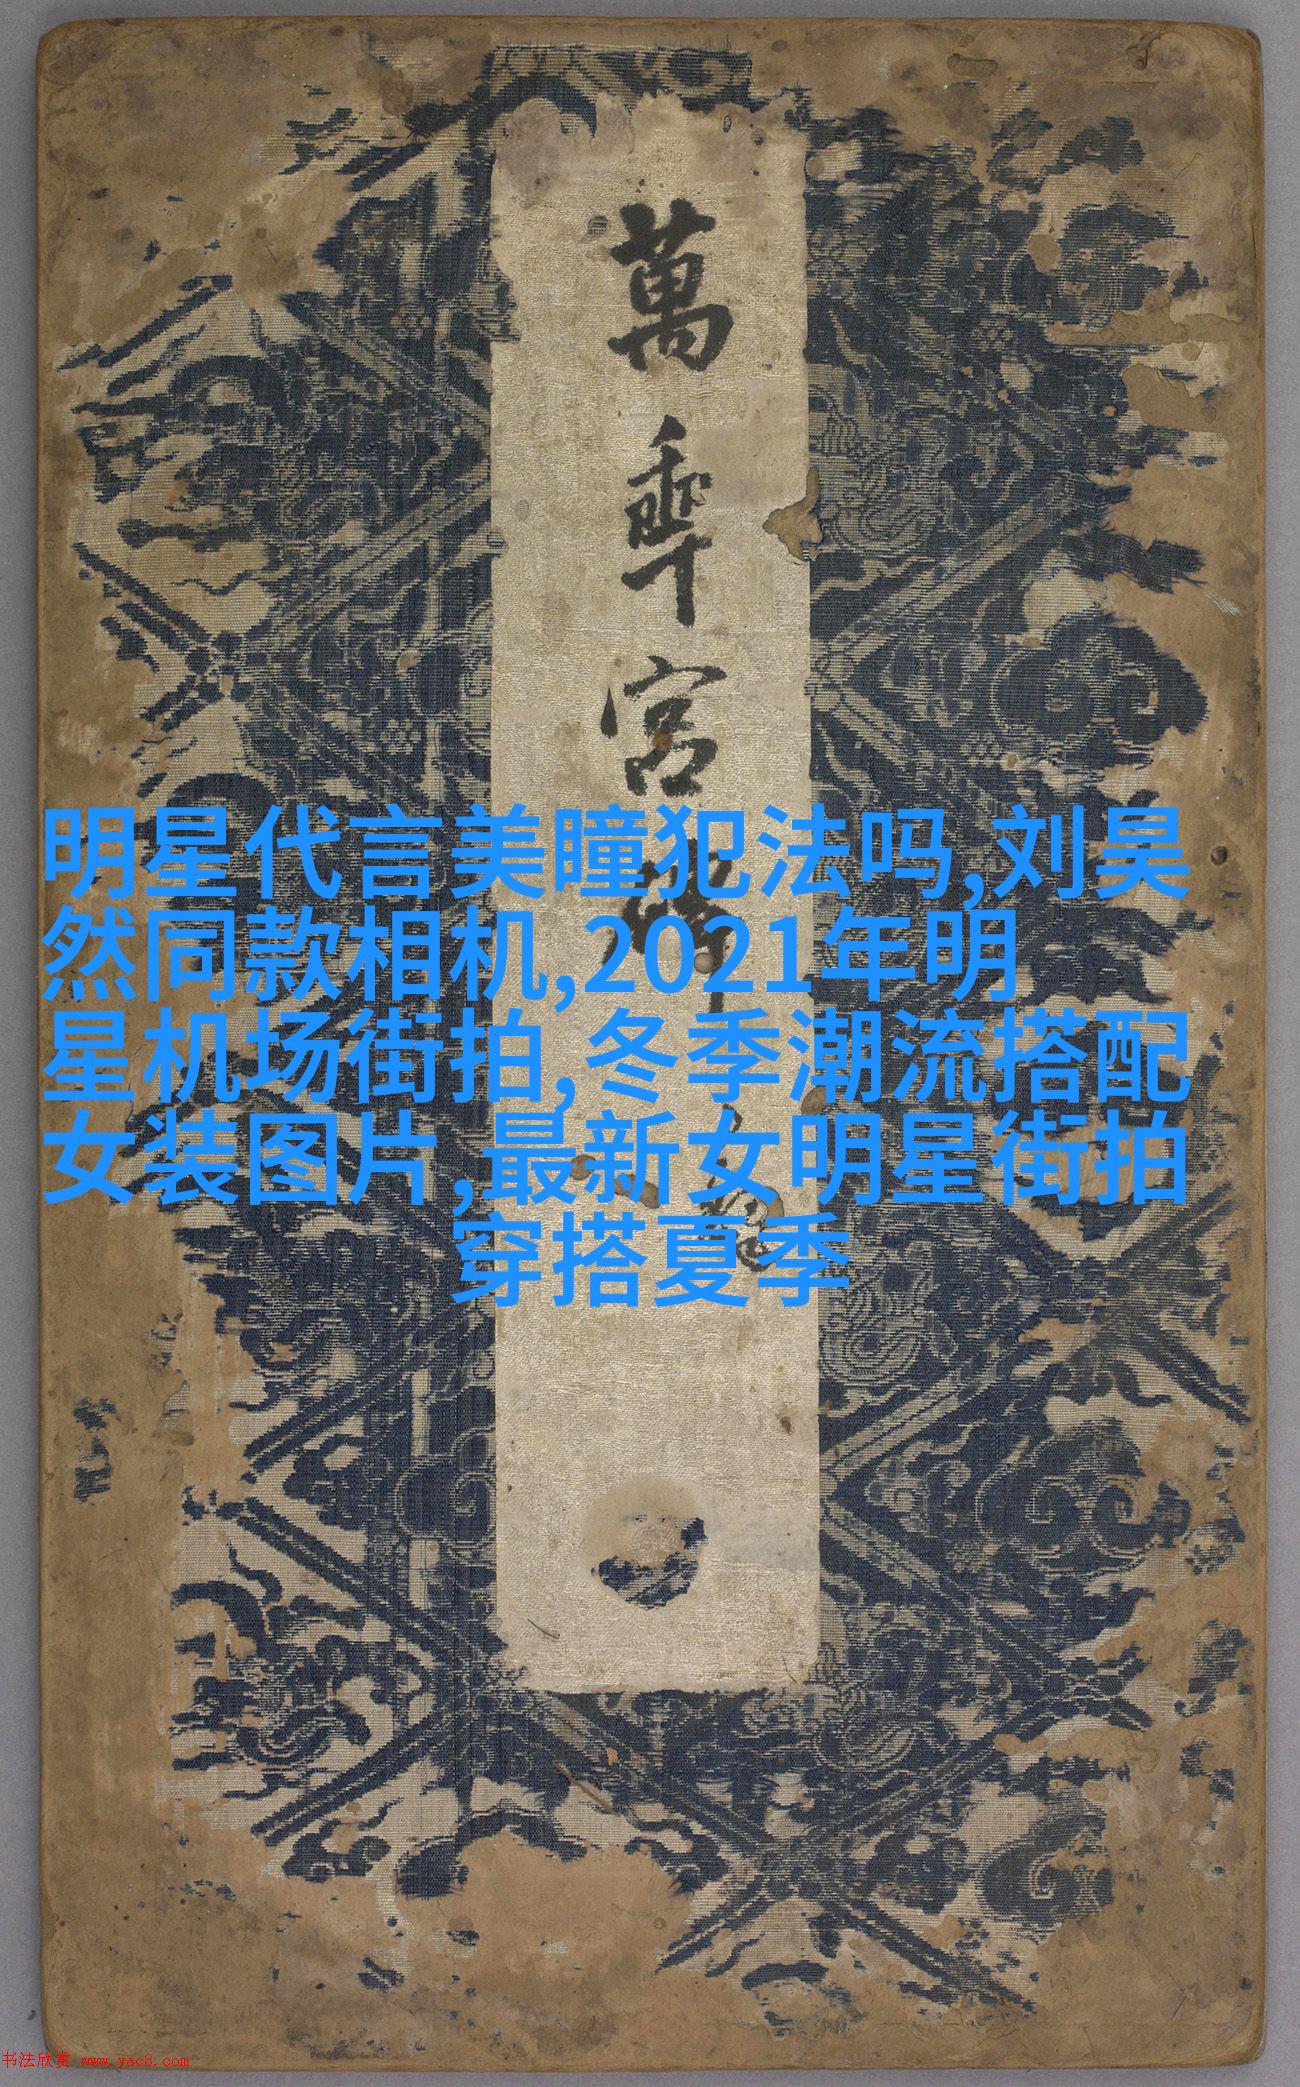 萬
乘
宫
明星代言美瞳犯法吗,刘昊
然同款相机,2021年明
星机场街拍,冬季潮流搭配
女装图片,最新女明星街拍
穿搭夏季
书法欣赏 www.yac8.com